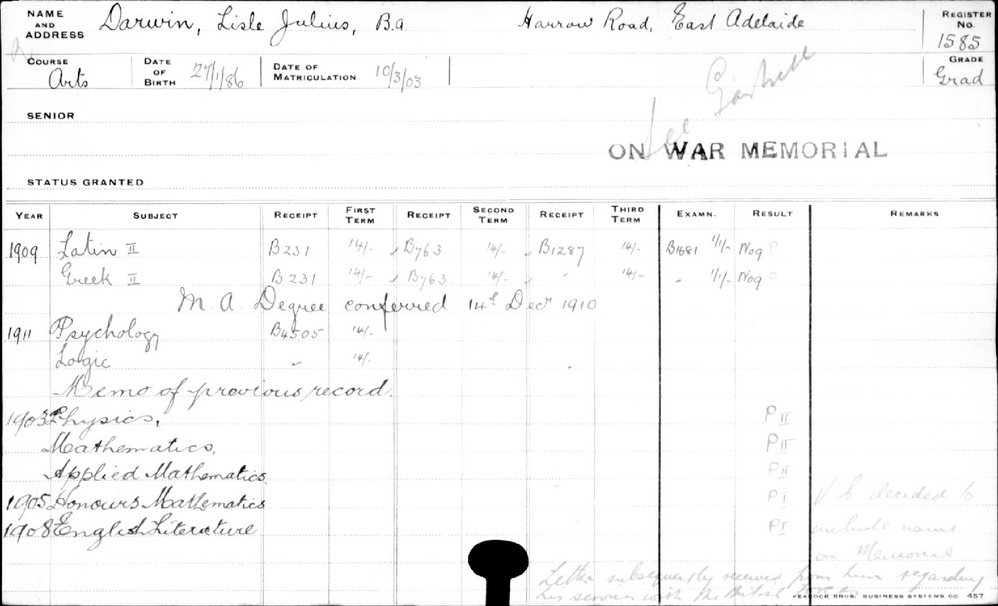 NAME AND ADDRESS Darwin, Lisle Julius, B.a Harrow Road, East Adelaide REGISTER No. 1585
COURSE Arts DATE OF BIRTH 27/1/86 DATE OF MATRICULATION 10/3/03 GRADE Grad
See
SENIOR
ON WAR MEMORIAL
STATUS GRANTED
YEAR SUBJECT RECEIPT FIRST TERM RECEIPT SECOND TERM RECEIPT THIRD TERM EXAMN. RESULT REMARKS
1909 Latin II B231 14/- B763 14/- B1287 14/- B1681 1/1/- Nog P
Greek II B231 14/- B763 14/- " 14/- " 1/1/- Nog P
M.A. Degree conferred 14th Decr 1910
1911 Psychology B4505 14/-
Logic " 14/-
Memo of previous record.
1903 Physics, P II
Mathematics, P II
Applied Mathematics P II
1905 Honours Mathematics P I V C decided to
1908 English Literature P I include name
on Memorial
Letter subsequently received from him regarding
his services with the British
PEACOCK BROS. BUSINESS SYSTEMS CO 457